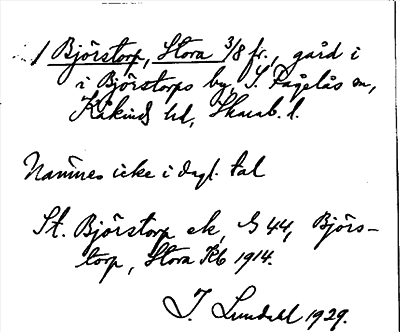 1 Björstorp, Stora 3/8 fr., gård i
i Björstorps by, S. Fågelås sn,
Kåkinds hd, Skarab. l.
Namnes icke i dagl. tal
St. Björstorp ek, G 44, Björs-
torp, Stora Kb 1914.
J. Lundahl 1929.